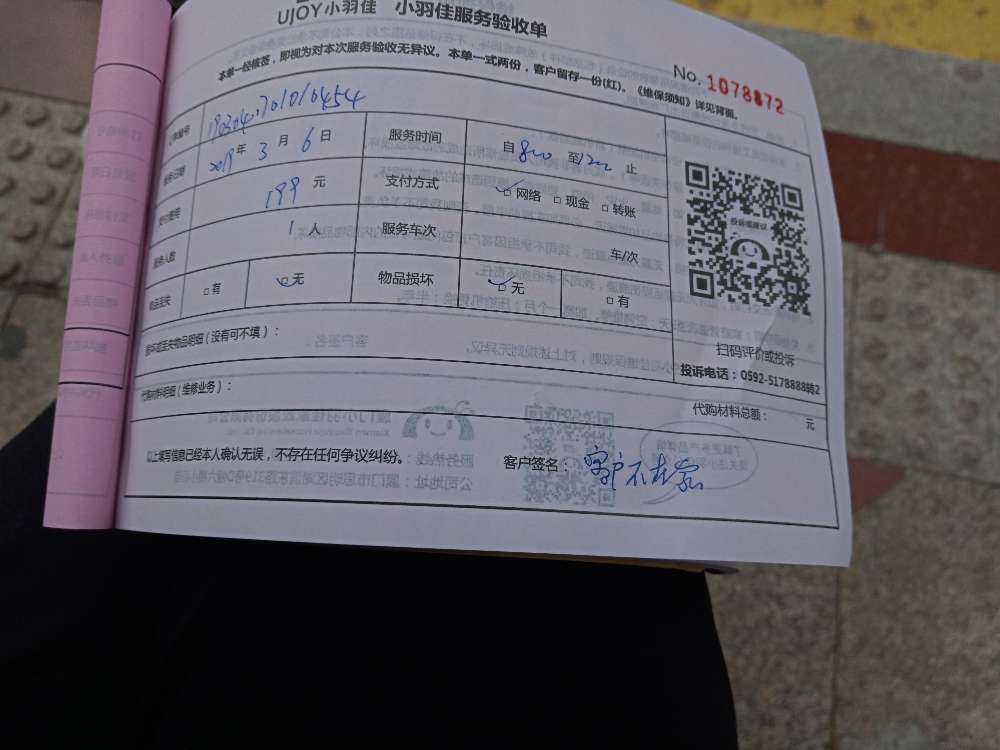 UJOY小羽佳 小羽佳服务验收单
本单一经核签，即视为对本次服务验收无异议。本单一式两份，客户留存一份(红)。《维保须知》详见背面。
No. 1078872
订单编号
服务日期 2019年 3月 6日 服务时间 自 8:00 至 12:00 止
支付费用 199 元 支付方式 网络 现金 转账
服务人数 1人 服务车次 车/次
物品丢失 有 无 物品损坏 无 有
投诉或建议
扫码评价或投诉
投诉电话：0592-5178888转2
损坏或丢失物品明细（没有可不填）：
代购材料明细（维修业务）： 代购材料总额： 元
以上填写信息已经本人确认无误，不存在任何争议纠纷。 客户签名：客户不在家